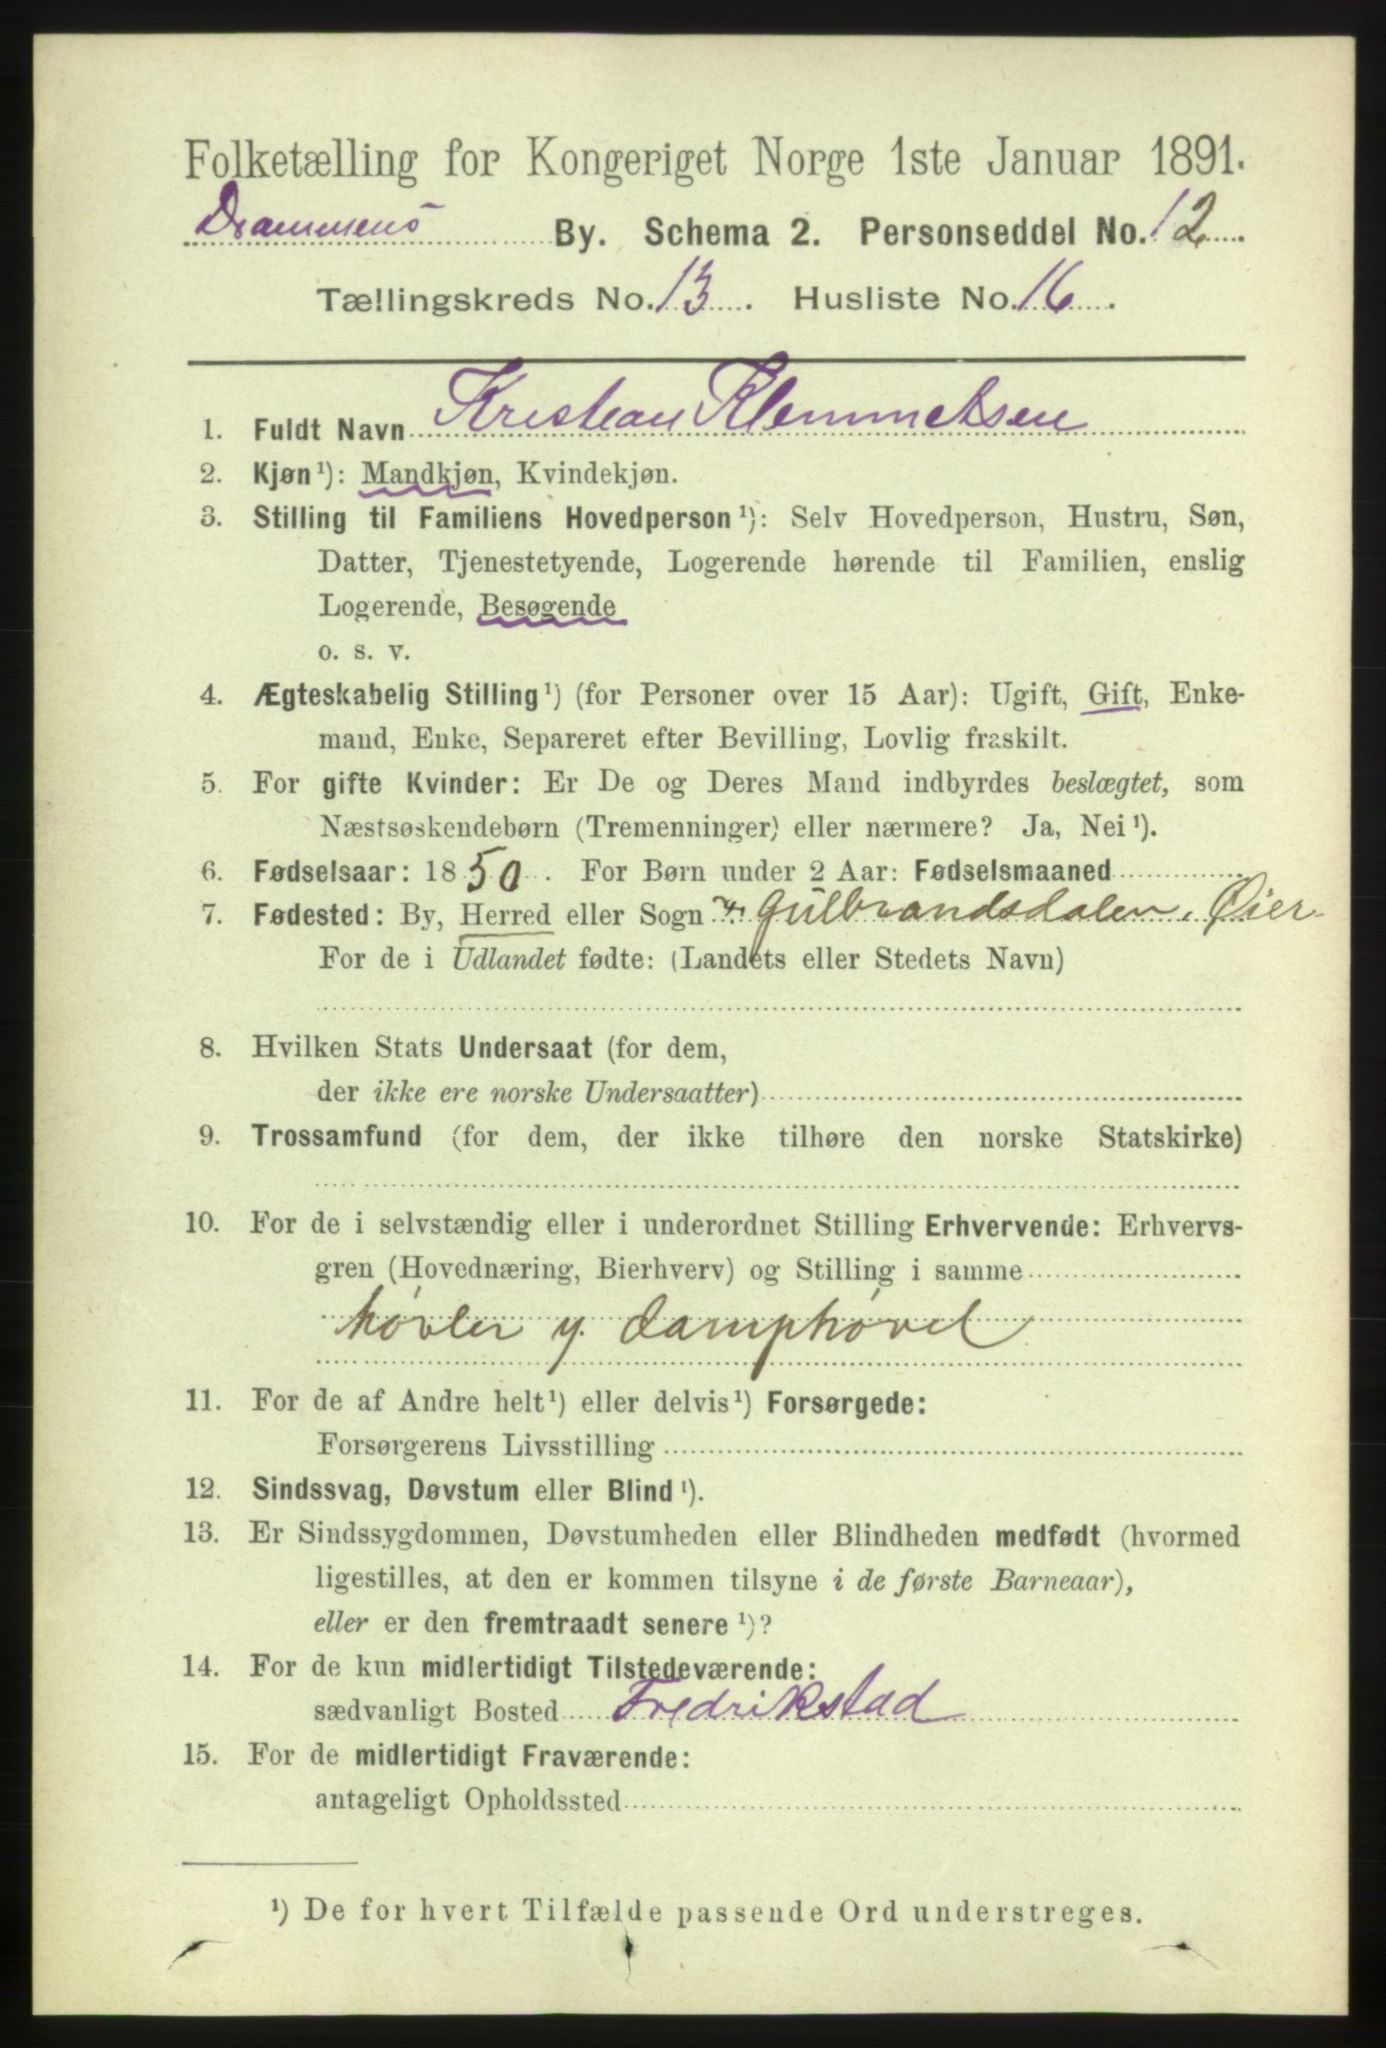 Folketælling for Kongeriget Norge 1ste Januar 1891.
Drammens By. Schema 2. Personseddel No. 12
Tællingskreds No. 13. Husliste No. 16.
1. Fuldt Navn Kristian Klemmetsen
2. Kjøn¹): Mandkjøn, Kvindekjøn.
3. Stilling til Familiens Hovedperson¹): Selv Hovedperson, Hustru, Søn,
Datter, Tjenestetyende, Logerende hørende til Familien, enslig
Logerende, Besøgende
o. s. v.
4. Ægteskabelig Stilling¹) (for Personer over 15 Aar): Ugift, Gift, Enke-
mand, Enke, Separeret efter Bevilling, Lovlig fraskilt.
5. For gifte Kvinder: Er De og Deres Mand indbyrdes beslægtet, som
Næstsøskendebørn (Tremenninger) eller nærmere? Ja, Nei¹).
6. Fødselsaar: 1850. For Børn under 2 Aar: Fødselsmaaned
7. Fødested: By, Herred eller Sogn Gulbrandsdalen. Øier
For de i Udlandet fødte: (Landets eller Stedets Navn)
8. Hvilken Stats Undersaat (for dem,
der ikke ere norske Undersaatter)
9. Trossamfund (for dem, der ikke tilhøre den norske Statskirke)
10. For de i selvstændig eller i underordnet Stilling Erhvervende: Erhvervs-
gren (Hovednæring, Bierhverv) og Stilling i samme
høvler y. damphøvel
11. For de af Andre helt¹) eller delvis¹) Forsørgede:
Forsørgerens Livsstilling
12. Sindssvag, Døvstum eller Blind¹).
13. Er Sindssygdommen, Døvstumheden eller Blindheden medfødt (hvormed
ligestilles, at den er kommen tilsyne i de første Barneaar),
eller er den fremtraadt senere¹)?
14. For de kun midlertidigt Tilstedeværende:
sædvanligt Bosted Fredrikstad
15. For de midlertidigt Fraværende:
antageligt Opholdssted
¹) De for hvert Tilfælde passende Ord understreges.